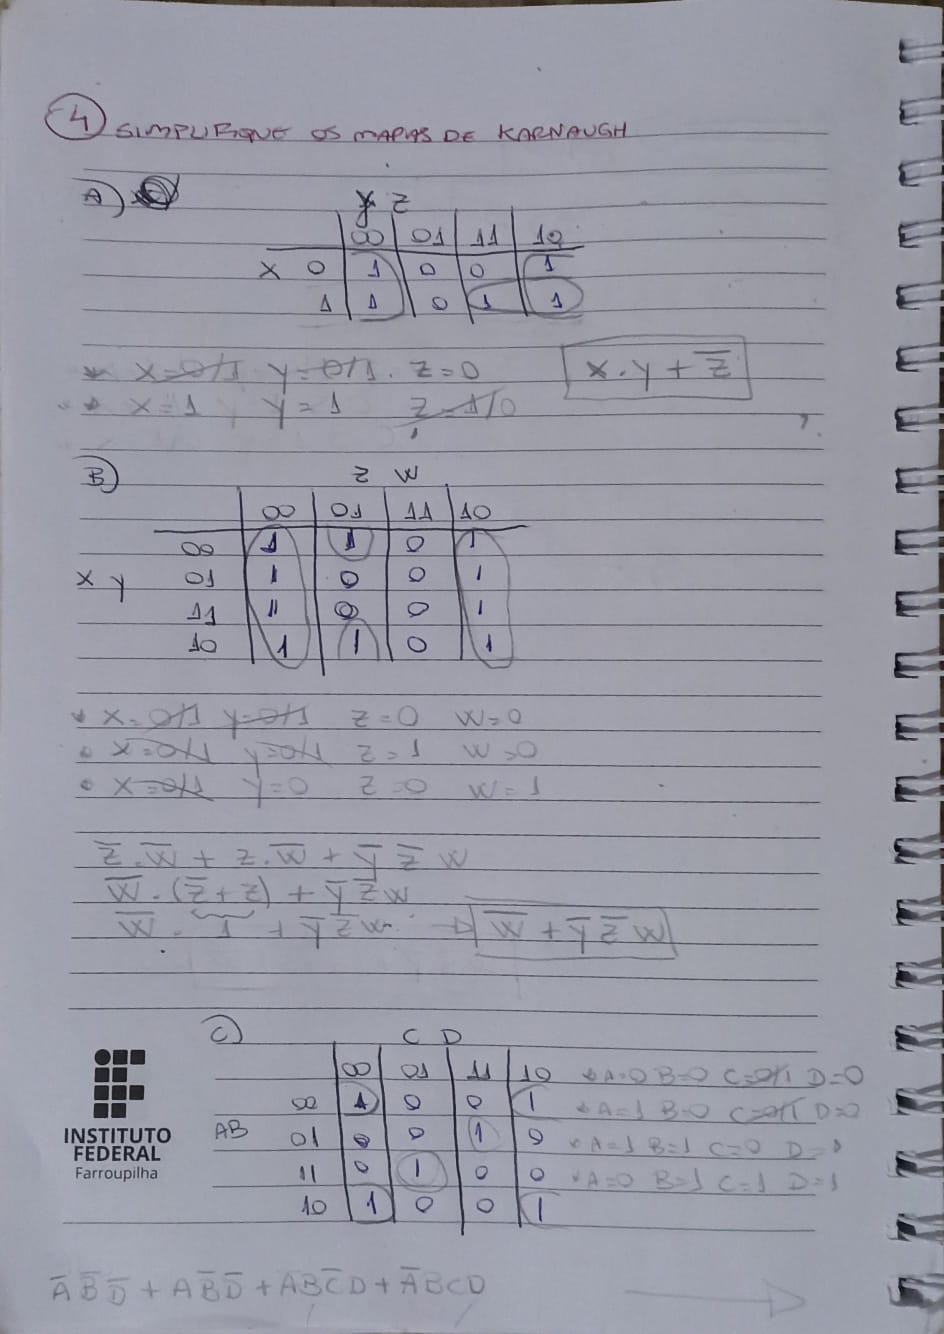 4 SIMPLIFIQUE OS MAPAS DE KARNAUGH
A)
y z
00 01 11 10
X 0 1 0 0 1
1 1 0 1 1
* X=0/1 Y=0/1. Z=0 X·Y+Z̅
* X=1 Y=1 Z=1/0
B) Z W
00 01 11 10
00 1 1 0 1
X Y 01 1 0 0 1
11 1 0 0 1
10 1 1 0 1
* X=0/1 Y=0/1 Z=0 W=0
• X=0/1 Y=0/1 Z=1 W=0
• X=0/1 Y=0 Z=0 W=1
Z̅·W̅ + Z·W̅ + Y̅ Z̅ W
W̅·(Z̅+Z) + Y̅ Z̅ W
W̅ · 1 + Y̅ Z̅ W. → W̅ + Y̅ Z̅ W
C) C D
00 01 11 10 * A=0 B=0 C=0/1 D=0
00 1 0 0 1 * A=1 B=0 C=0/1 D=0
AB 01 0 0 1 0 * A=1 B=1 C=0 D=1
11 0 1 0 0 * A=0 B=1 C=1 D=1
10 1 0 0 1
INSTITUTO
FEDERAL
Farroupilha
A̅ B̅ D̅ + A B̅ D̅ + A B C̅ D + A̅ B C D